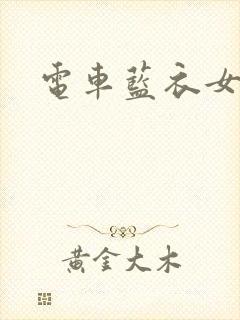 電車藍衣女
黃金大木